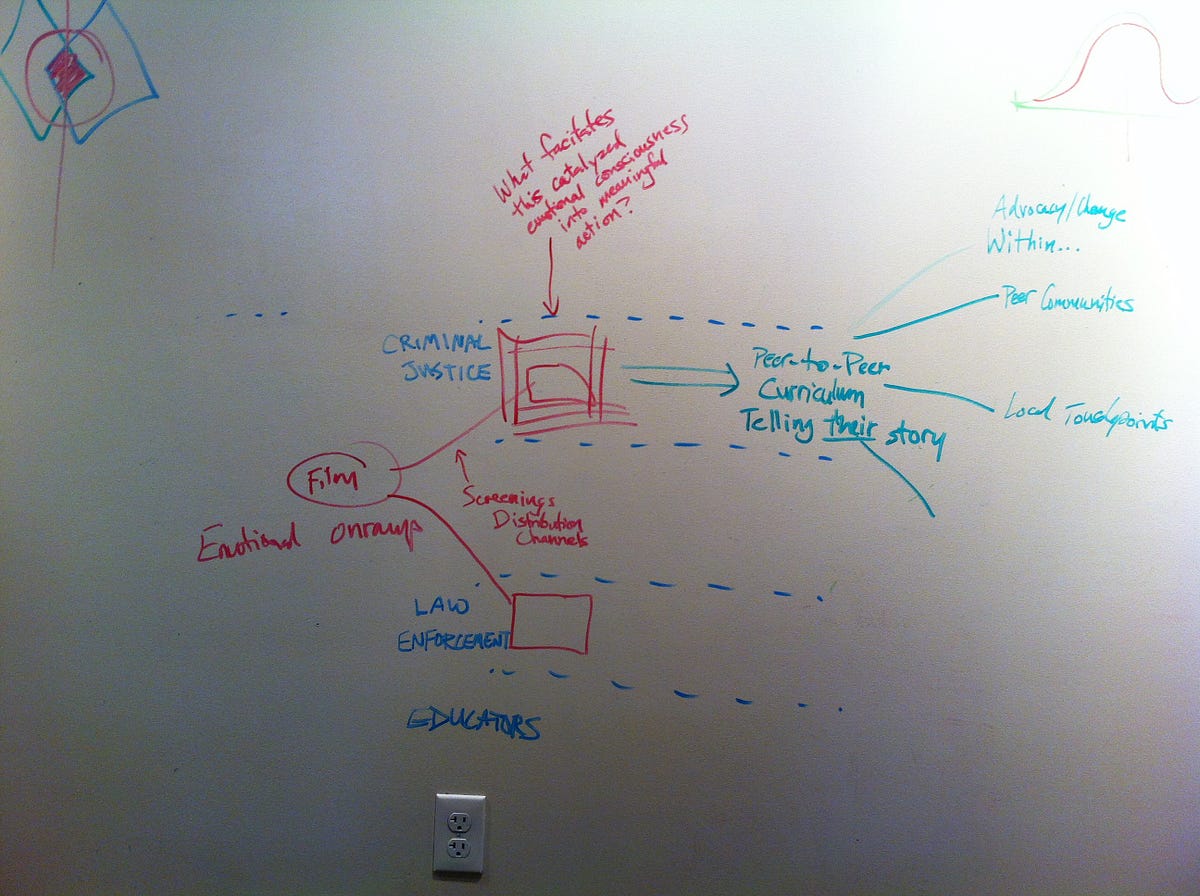 What facilitates
this catalyzed
emotional consciousness
into meaningful
action?
Advocacy/Change
Within...
Peer Communities
CRIMINAL
JUSTICE
Peer-to-Peer
Curriculum
Telling their story
Local Touchpoints
Film
Emotional onramp
Screenings
Distribution
Channels
LAW
ENFORCEMENT
EDUCATORS